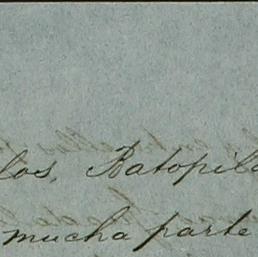 los, Batopila
mucha parte